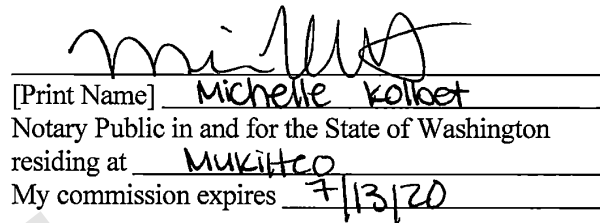 [Print Name] Michelle Kolbet
Notary Public in and for the State of Washington
residing at Mukilteo
My commission expires 7/13/20